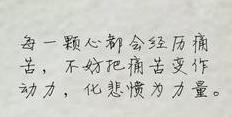 每一颗心都会经历痛
苦，不妨把痛苦变作
动力，化悲愤为力量。